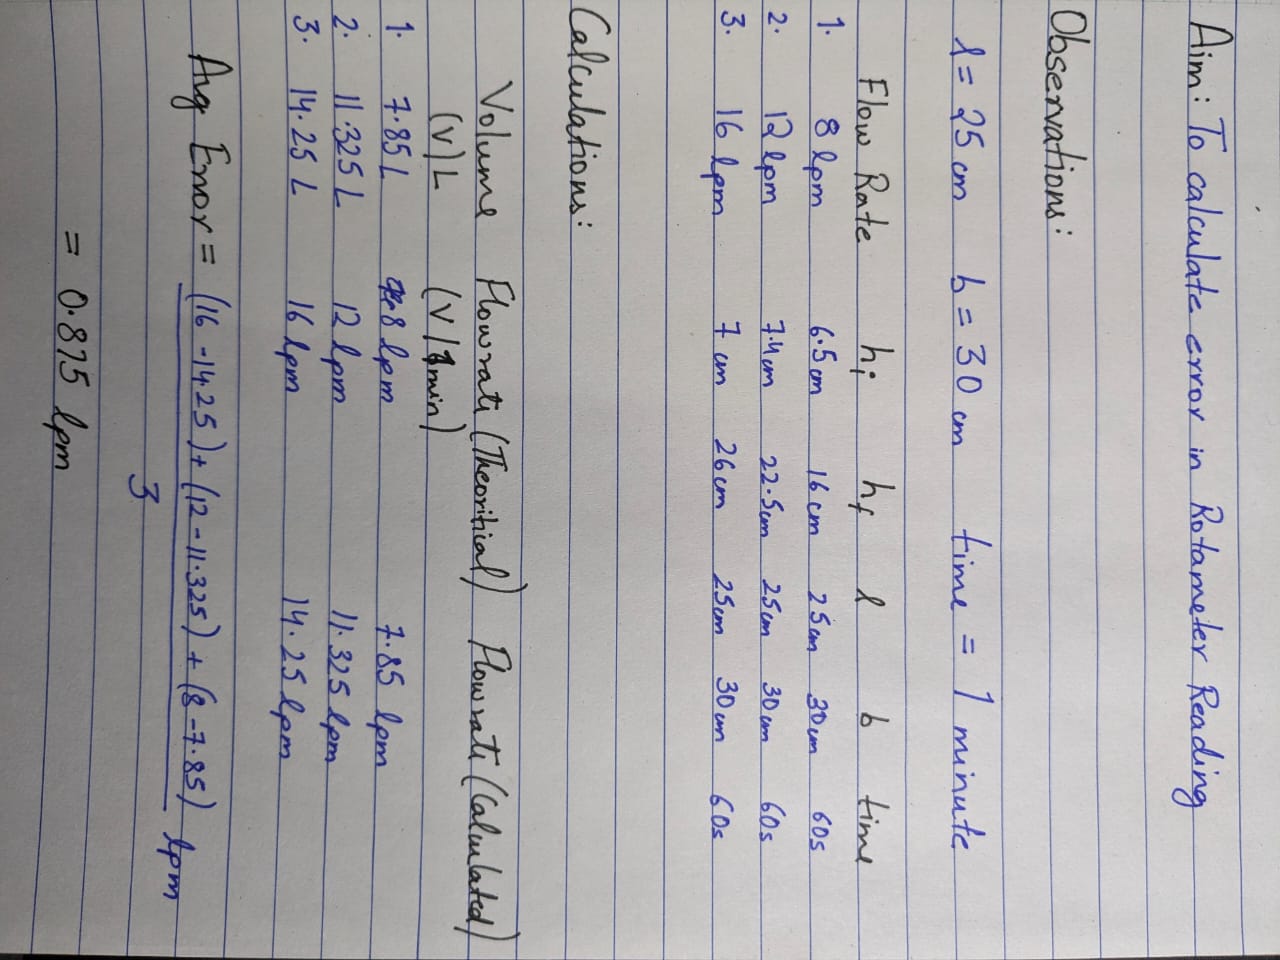 Aim: To calculate error in Rotameter Reading
Observations:
l = 25 cm b = 30 cm time = 1 minute
Flow Rate hi hf l b time
1. 8 lpm 6.5cm 16cm 25cm 30cm 60s
2. 12 lpm 7.4cm 22.5cm 25cm 30cm 60s
3. 16 lpm 7 cm 26cm 25cm 30cm 60s
Calculations:
Volume Flowrate (Theoritical) Flowrate (Calculated)
(V)L (V/1min)
1. 7.85 L 8 lpm 7.85 lpm
2. 11.325 L 12 lpm 11.325 lpm
3. 14.25 L 16 lpm 14.25 lpm
Avg Error = (16 - 14.25) + (12 - 11.325) + (8 - 7.85) lpm
3
= 0.875 lpm